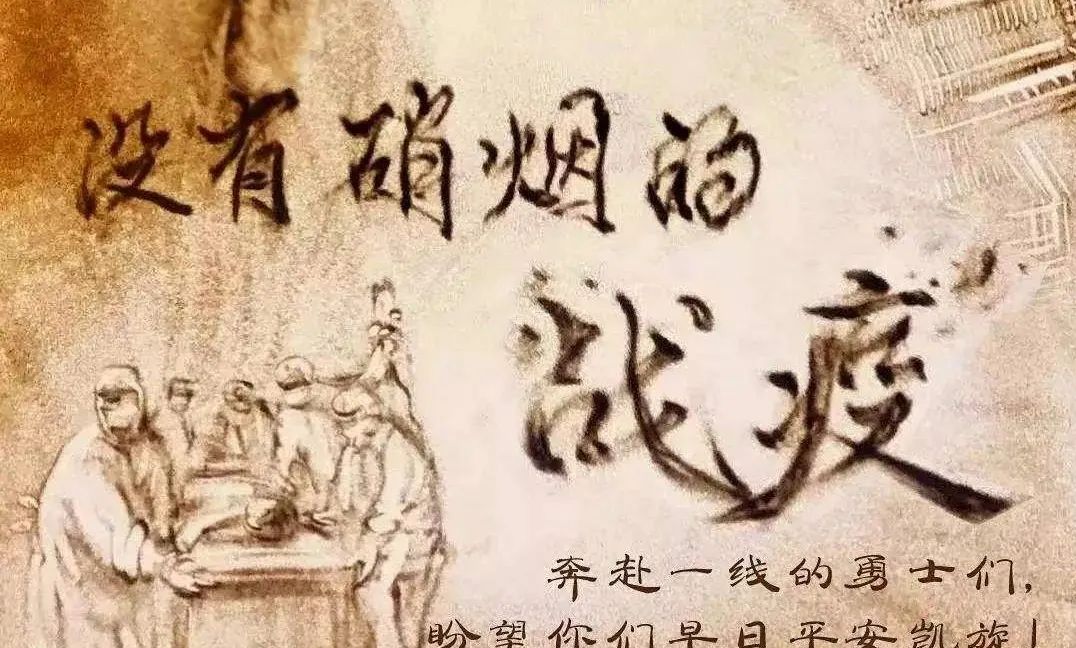 没有硝烟的
战疫
奔赴一线的勇士们,
盼望你们早日平安凯旋!